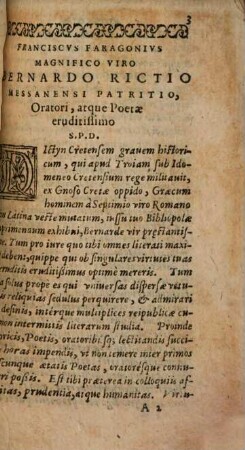 3
FRANCISCVS FARAGONIVS
MAGNIFICO VIRO
BERNARDO RICTIO
MESSANENSI PATRITIO,
Oratori, atque Poetæ
eruditissimo
S. P. D.
DIctyn Cretensem grauem historicum
, qui apud Troiam sub Idomeneo
Cretensium rege militauit,
ex Gnoso Cretæ oppido, Græcum
hominem à Septimio viro Romano
Latina veste mutatum, iussu tuo Bibliopolæ
exhibui, Bernarde vir præstantissi
Tum pro iure quo tibi omnes literati maxi
debent, quippe qui ob singulares virtutes tuas
eruditi eruditissimus optime mereris. Tum
solus prope es qui vniuersas dispersas vetus
reliquias sedulus perquirere, & admirari
desinis, intérque multiplices reipublicæ cu
non intermissis literarum studia. Proinde
Poetis, oratoribúsq; lectitandis succi
horas impendis, vt non temere inter primos
cunque ætatis Poetas, oratorésque connu
possis. Est tibi præterea in colloquiis af
prudentia, atque humanitas.
A 2